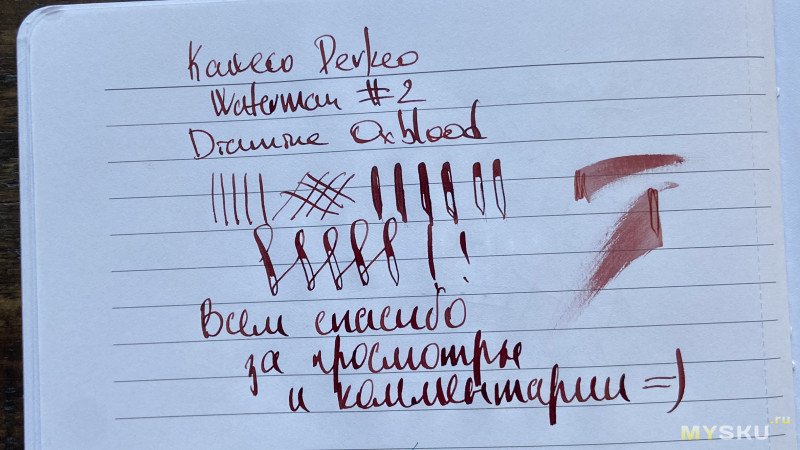 Kaweco Perkeo
Waterman #2
Diamine Oxblood
Всем спасибо
за просмотры
и комментарии =)
MYSKU.ru